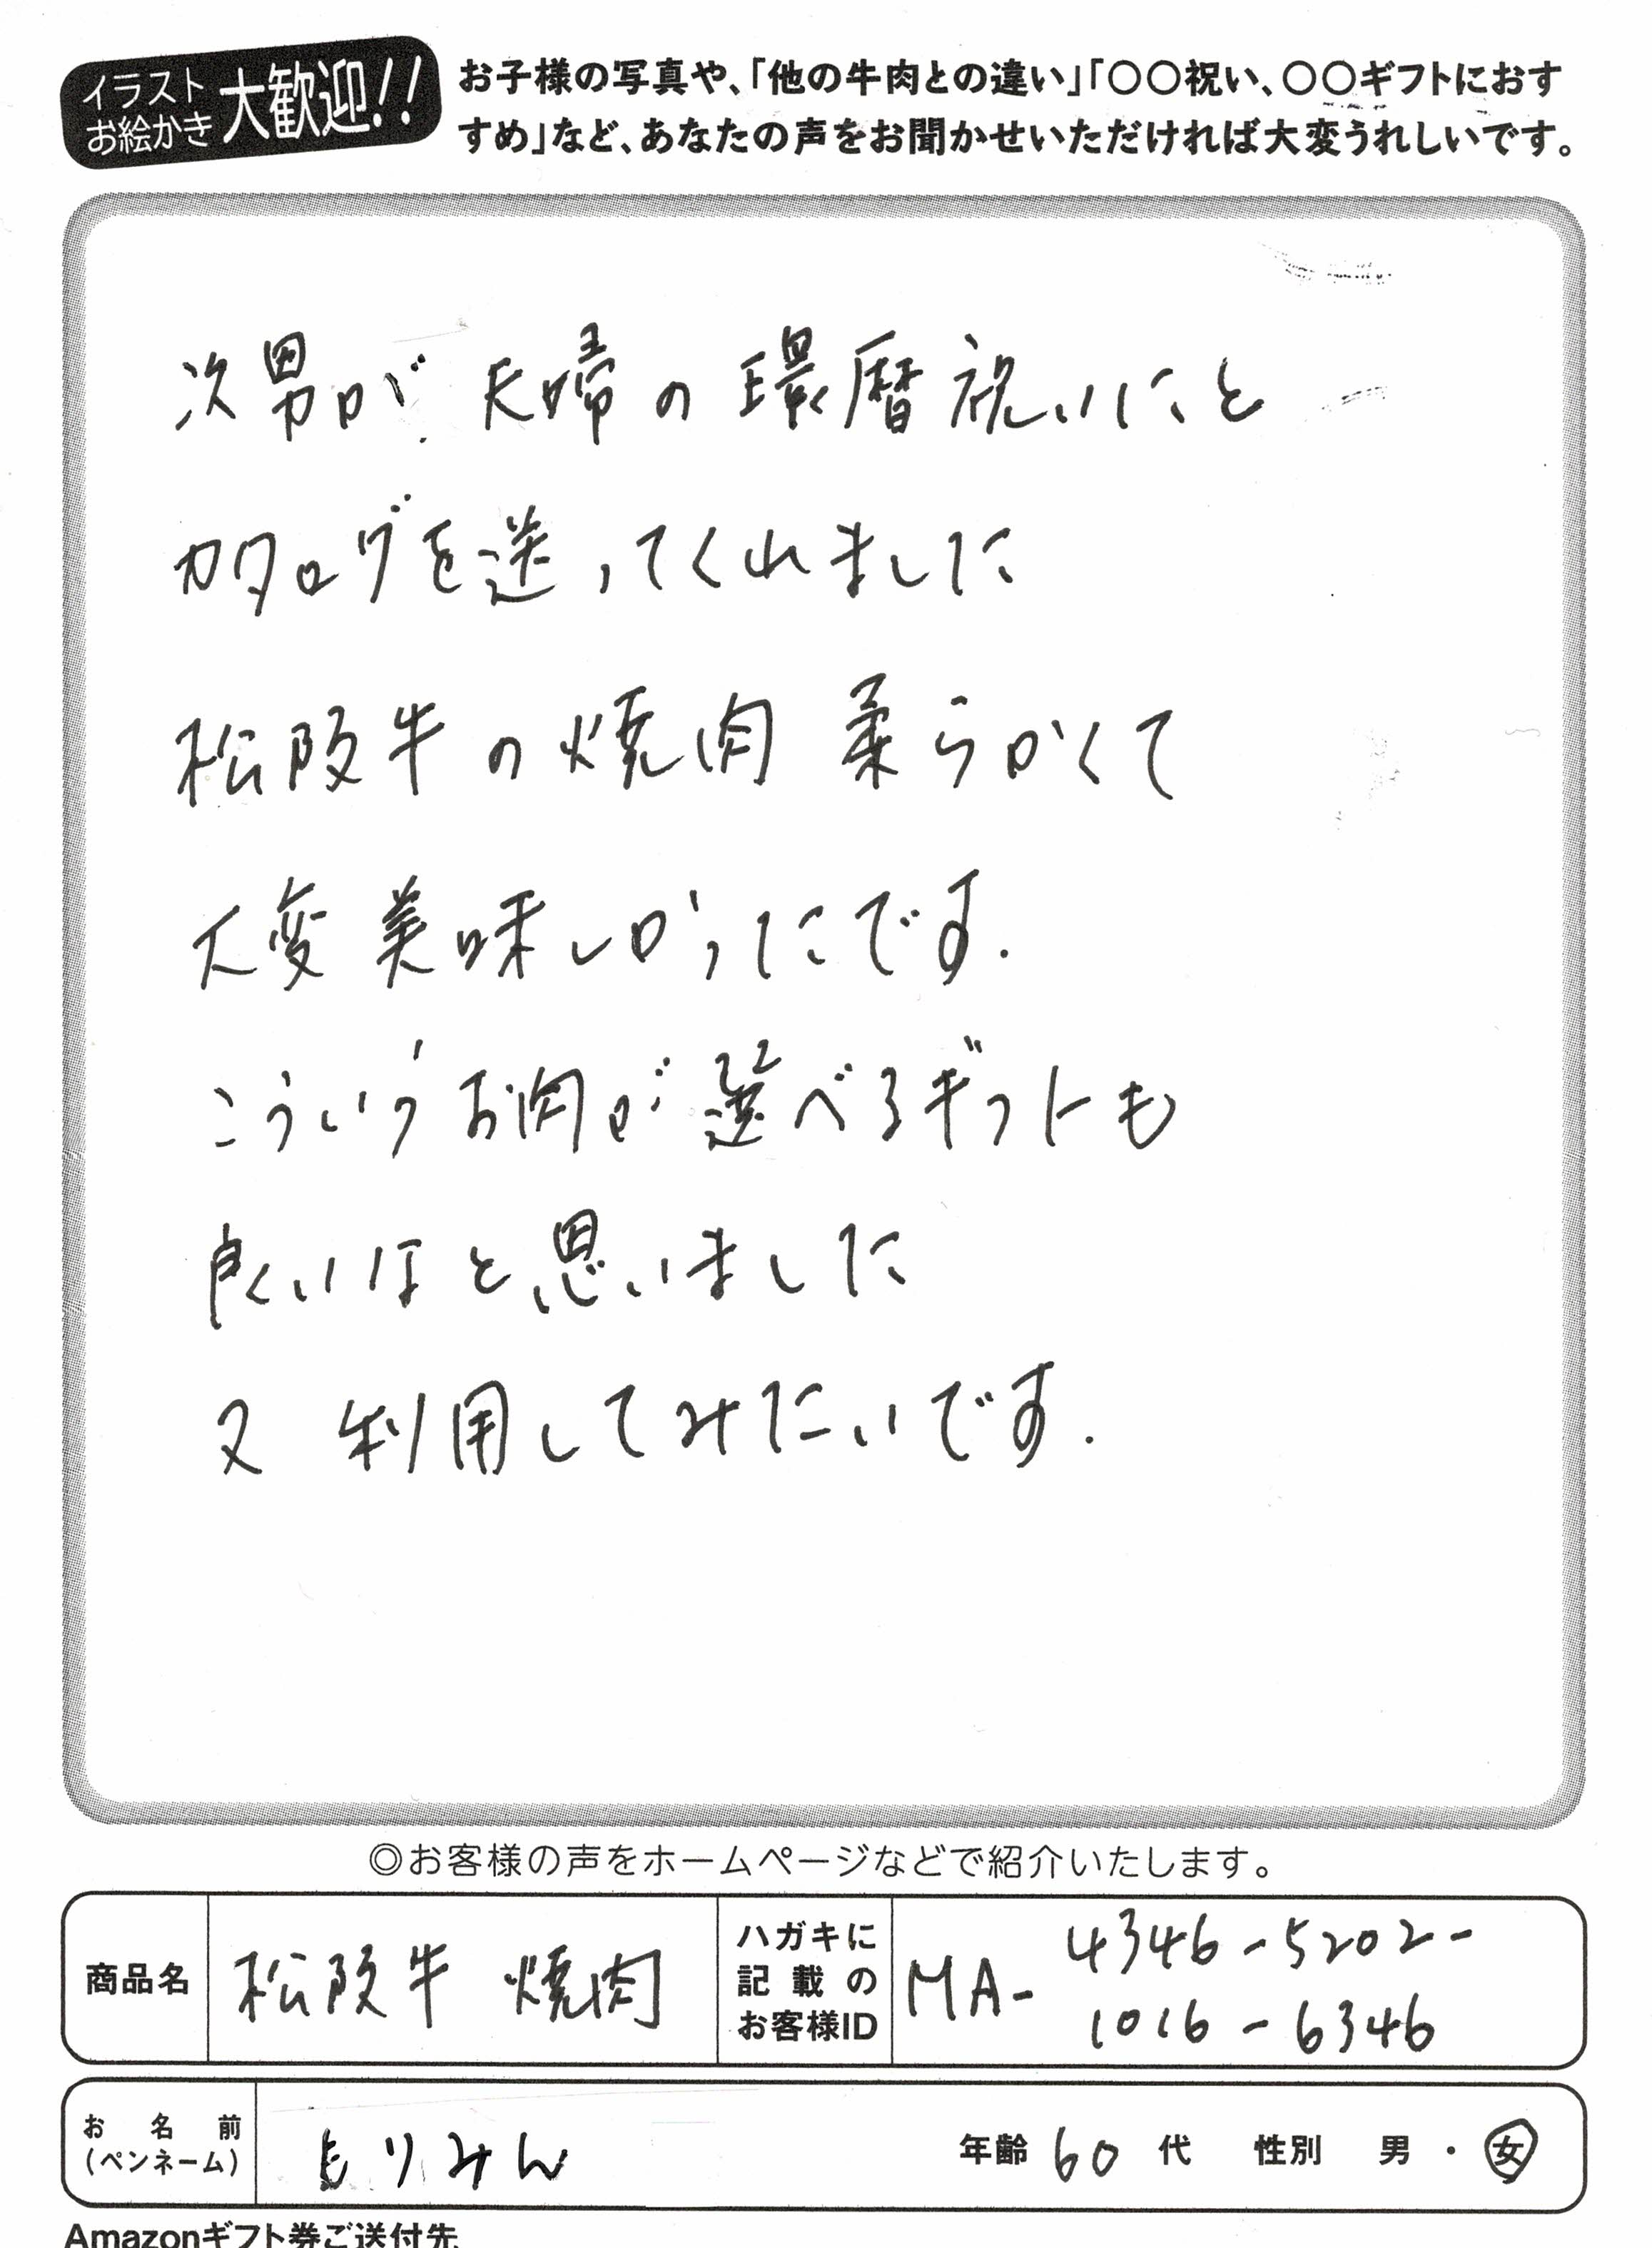 イラスト
お絵かき
大歓迎!!
お子様の写真や、「他の牛肉との違い」「○○祝い、○○ギフトにおす
すめ」など、あなたの声をお聞かせいただければ大変うれしいです。
次男が 夫婦の環暦祝いにと
カタログを送ってくれました
松阪牛の焼肉 柔らかくて
大変美味しかったです.
こういうお肉が選べるギフトも
良いなと思いました
又 利用してみたいです.
◎お客様の声をホームページなどで紹介いたします。
商品名 松阪牛 焼肉
ハガキに
記載の
お客様ID
MA-4346-5202-
1016-6346
お名前
(ペンネーム)
もりみん
年齢 60 代 性別 男・女
Amazonギフト券ご送付先